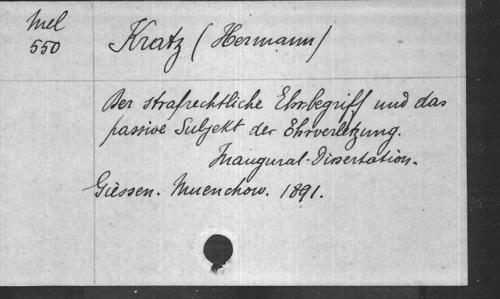 Mel
550
Kratz (Hermann)
Der strafrechtliche Ehrbegriff und das
passive Subjekt der Ehrverletzung.
Inaugural-Dissertation.
Giessen. Muenchow. 1891.